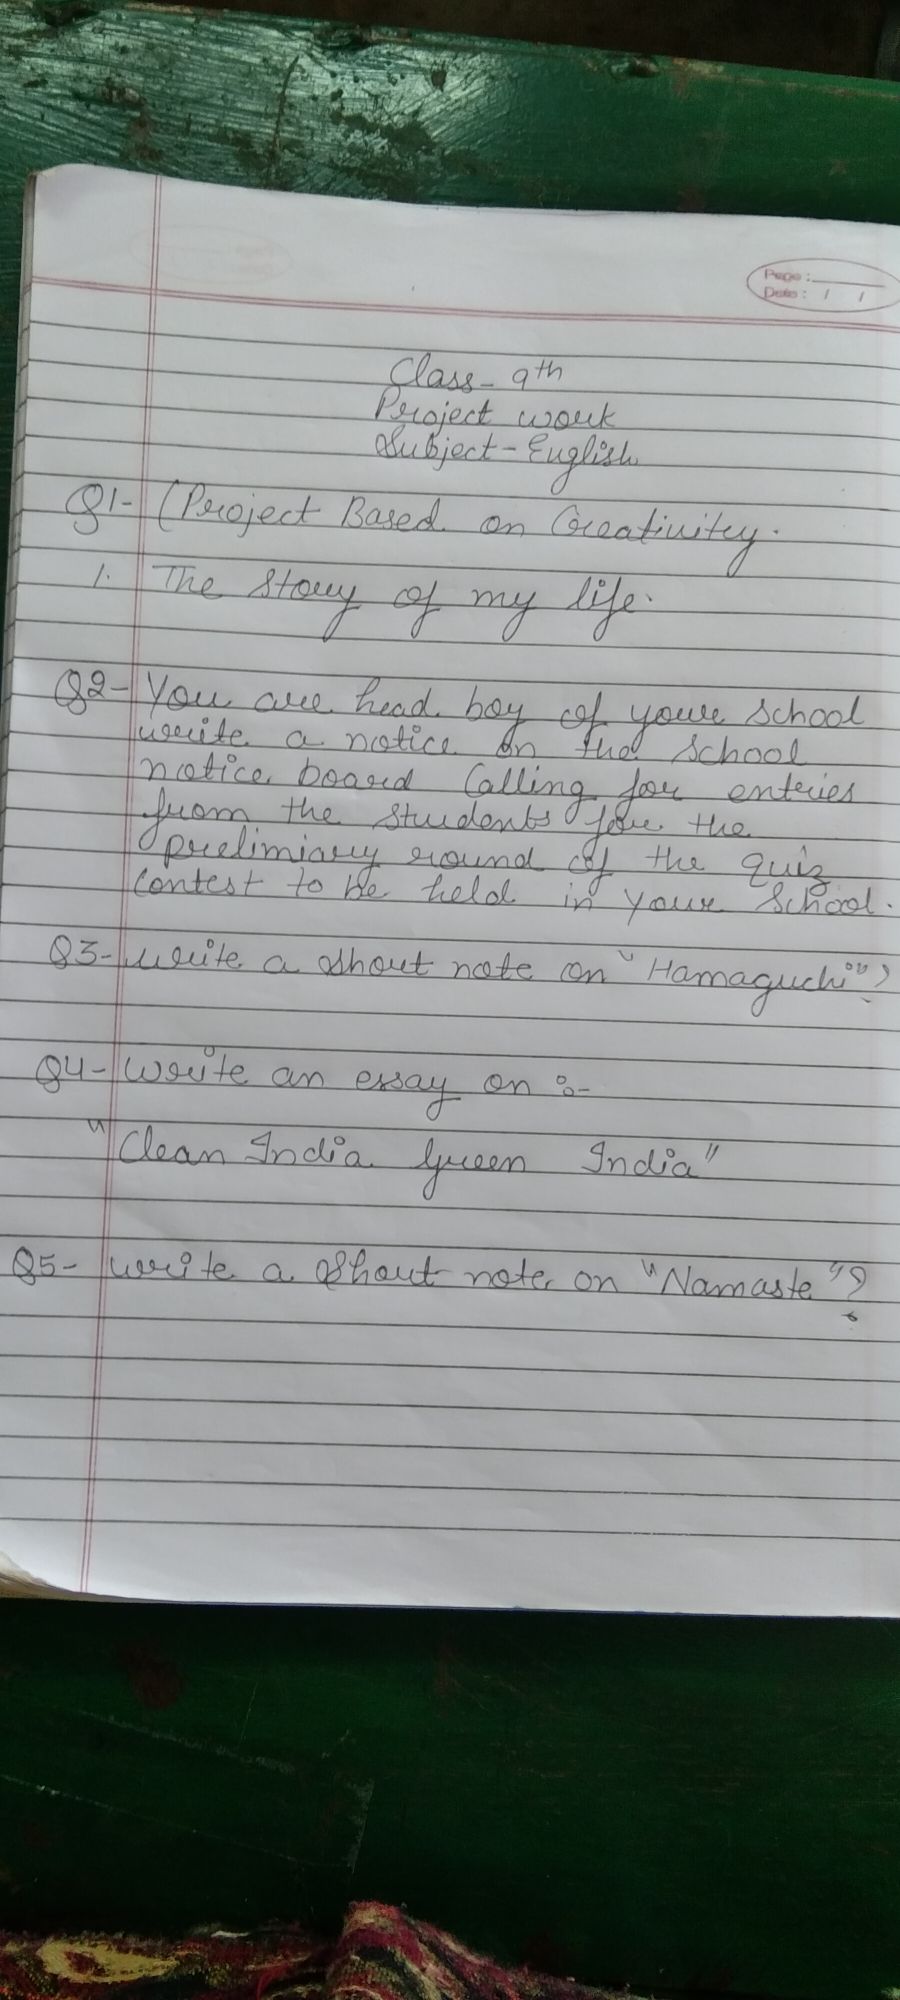 Page :
Date : / /
Class - 9th
Project work
Subject - English
Q1- (Project Based on Creativity.
1. The Story of my life.
Q2- You are head boy of your School
write a notice on the School
notice board Calling for entries
from the Students for the
preliminiary round of the quiz
Contest to be held in your School.
Q3- write a short note on "Hamaguchi"?
Q4- Write an essay on :-
"Clean India Green India"
Q5- write a Short note on "Namaste"?